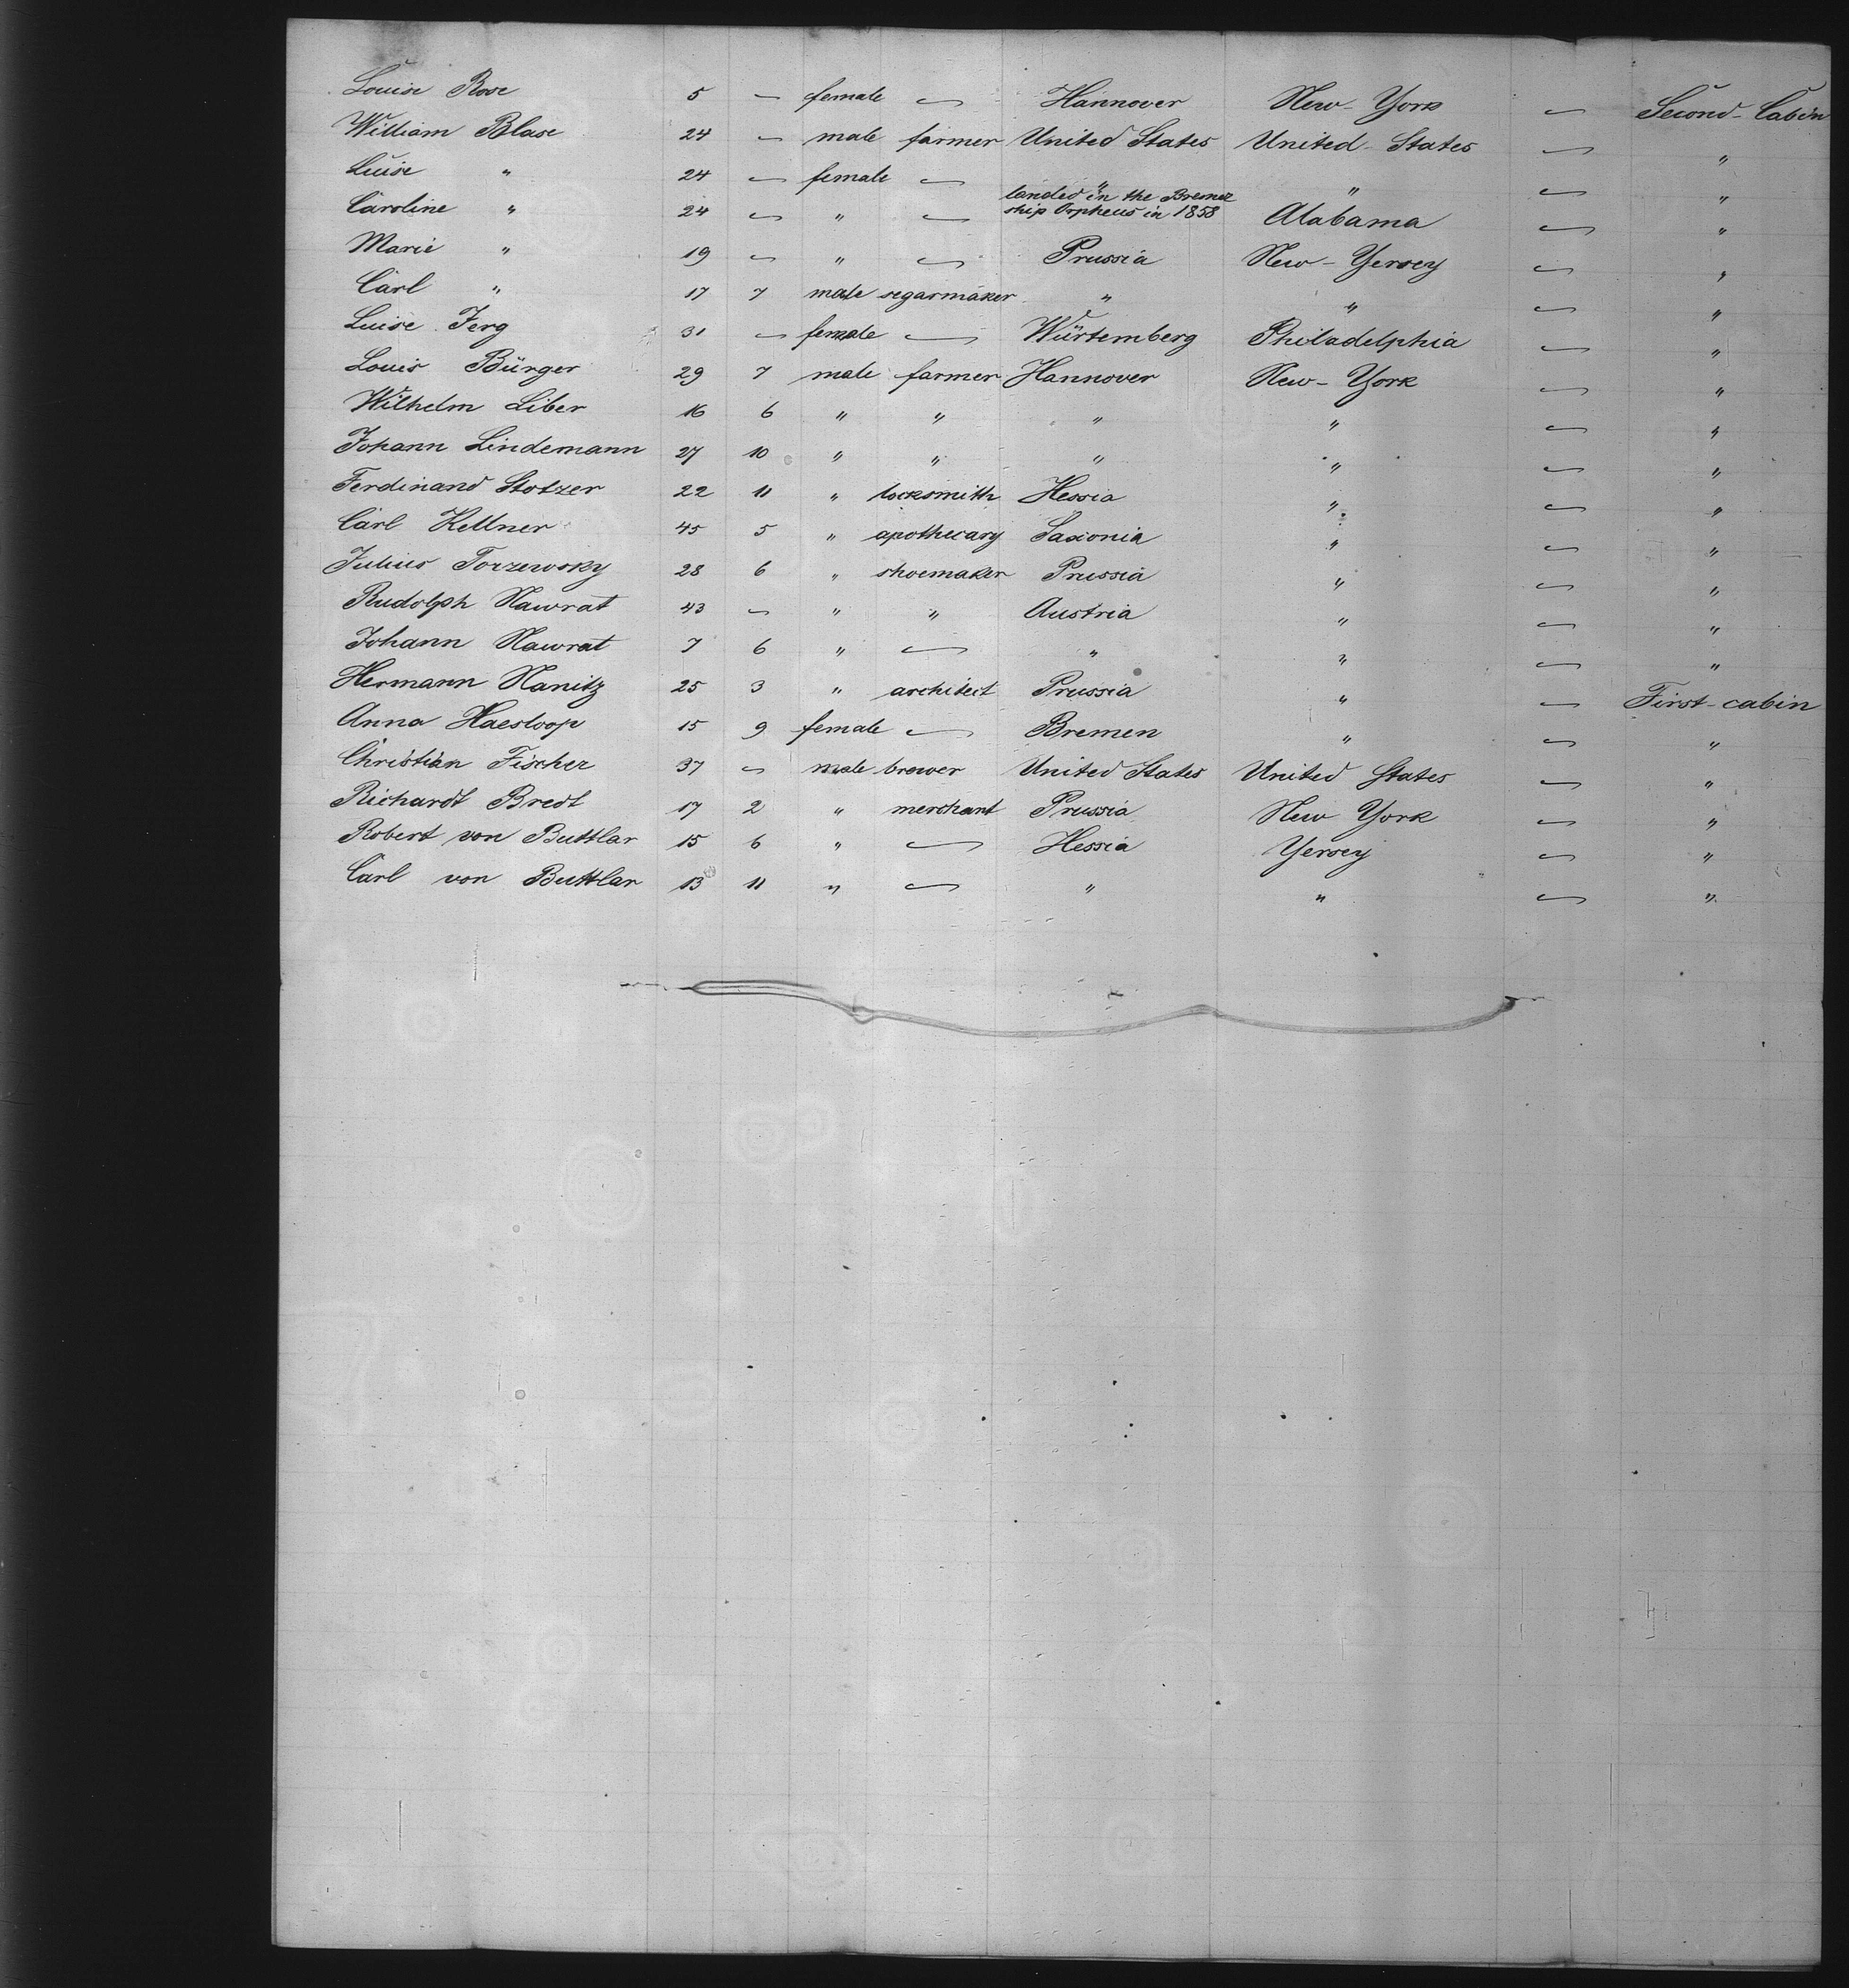 Louise Rose 5 — female — Hannover New-York — Second-Cabin
William Blase 24 — male farmer United States United-States — "
Luise " 24 — female — " " — "
Caroline " 24 — " — landed in the Bremer ship Orpheus in 1858 Alabama — "
Marie " 19 — " — Prussia New-Yersey — "
Carl " 17 7 male segarmaker " " — "
Luise Ferg 31 — female — Würtemberg Philadelphia — "
Louis Bürger 29 7 male farmer Hannover New-York — "
Wilhelm Liber 16 6 " " " " — "
Johann Lindemann 27 10 " " " " — "
Ferdinand Stotzer 22 11 " locksmith Hessia " — "
Carl Kellner 45 5 " apothecary Saxonia " — "
Julius Torzewsky 28 6 " shoemaker Prussia " — "
Rudolph Nawrat 43 — " " Austria " — "
Johann Nawrat 7 6 " — " " — "
Hermann Nanitz 25 3 " architect Prussia " — First-cabin
Anna Haesloop 15 9 female — Bremen " — "
Christian Fischer 37 — male brewer United States United States — "
Richardt Bredt 17 2 " merchant Prussia New York — "
Robert von Buttlar 15 6 " — Hessia Yersey — "
Carl von Buttlar 13 11 " — " " — "